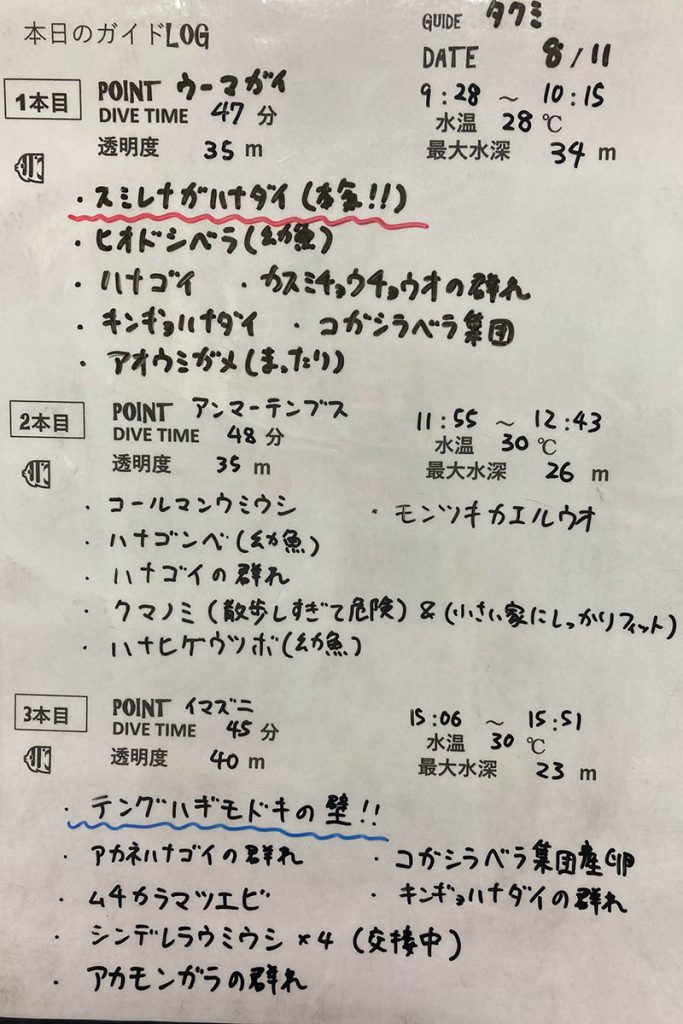 本日のガイドLOG
GUIDE タクミ
DATE 8/11
1本目 POINT ウーマガイ 9:28 〜 10:15
DIVE TIME 47 分 水温 28 ℃
透明度 35 m 最大水深 34 m
・スミレナガハナダイ(本気!!)
・ヒオドシベラ(幼魚)
・ハナゴイ ・カスミチョウチョウオの群れ
・キンギョハナダイ ・コガシラベラ集団
・アオウミガメ(まったり)
2本目 POINT アンマーテンブス 11:55 〜 12:43
DIVE TIME 48 分 水温 30 ℃
透明度 35 m 最大水深 26 m
・コールマンウミウシ ・モンツキカエルウオ
・ハナゴンベ(幼魚)
・ハナゴイの群れ
・クマノミ(散歩しすぎて危険)&(小さい家にしっかりフィット)
・ハナヒゲウツボ(幼魚)
3本目 POINT イマズニ 15:06 〜 15:51
DIVE TIME 45 分 水温 30 ℃
透明度 40 m 最大水深 23 m
・テングハギモドキの壁!!
・アカネハナゴイの群れ ・コガシラベラ集団産卵
・ムチカラマツエビ ・キンギョハナダイの群れ
・シンデレラウミウシ×4(交接中)
・アカモンガラの群れ